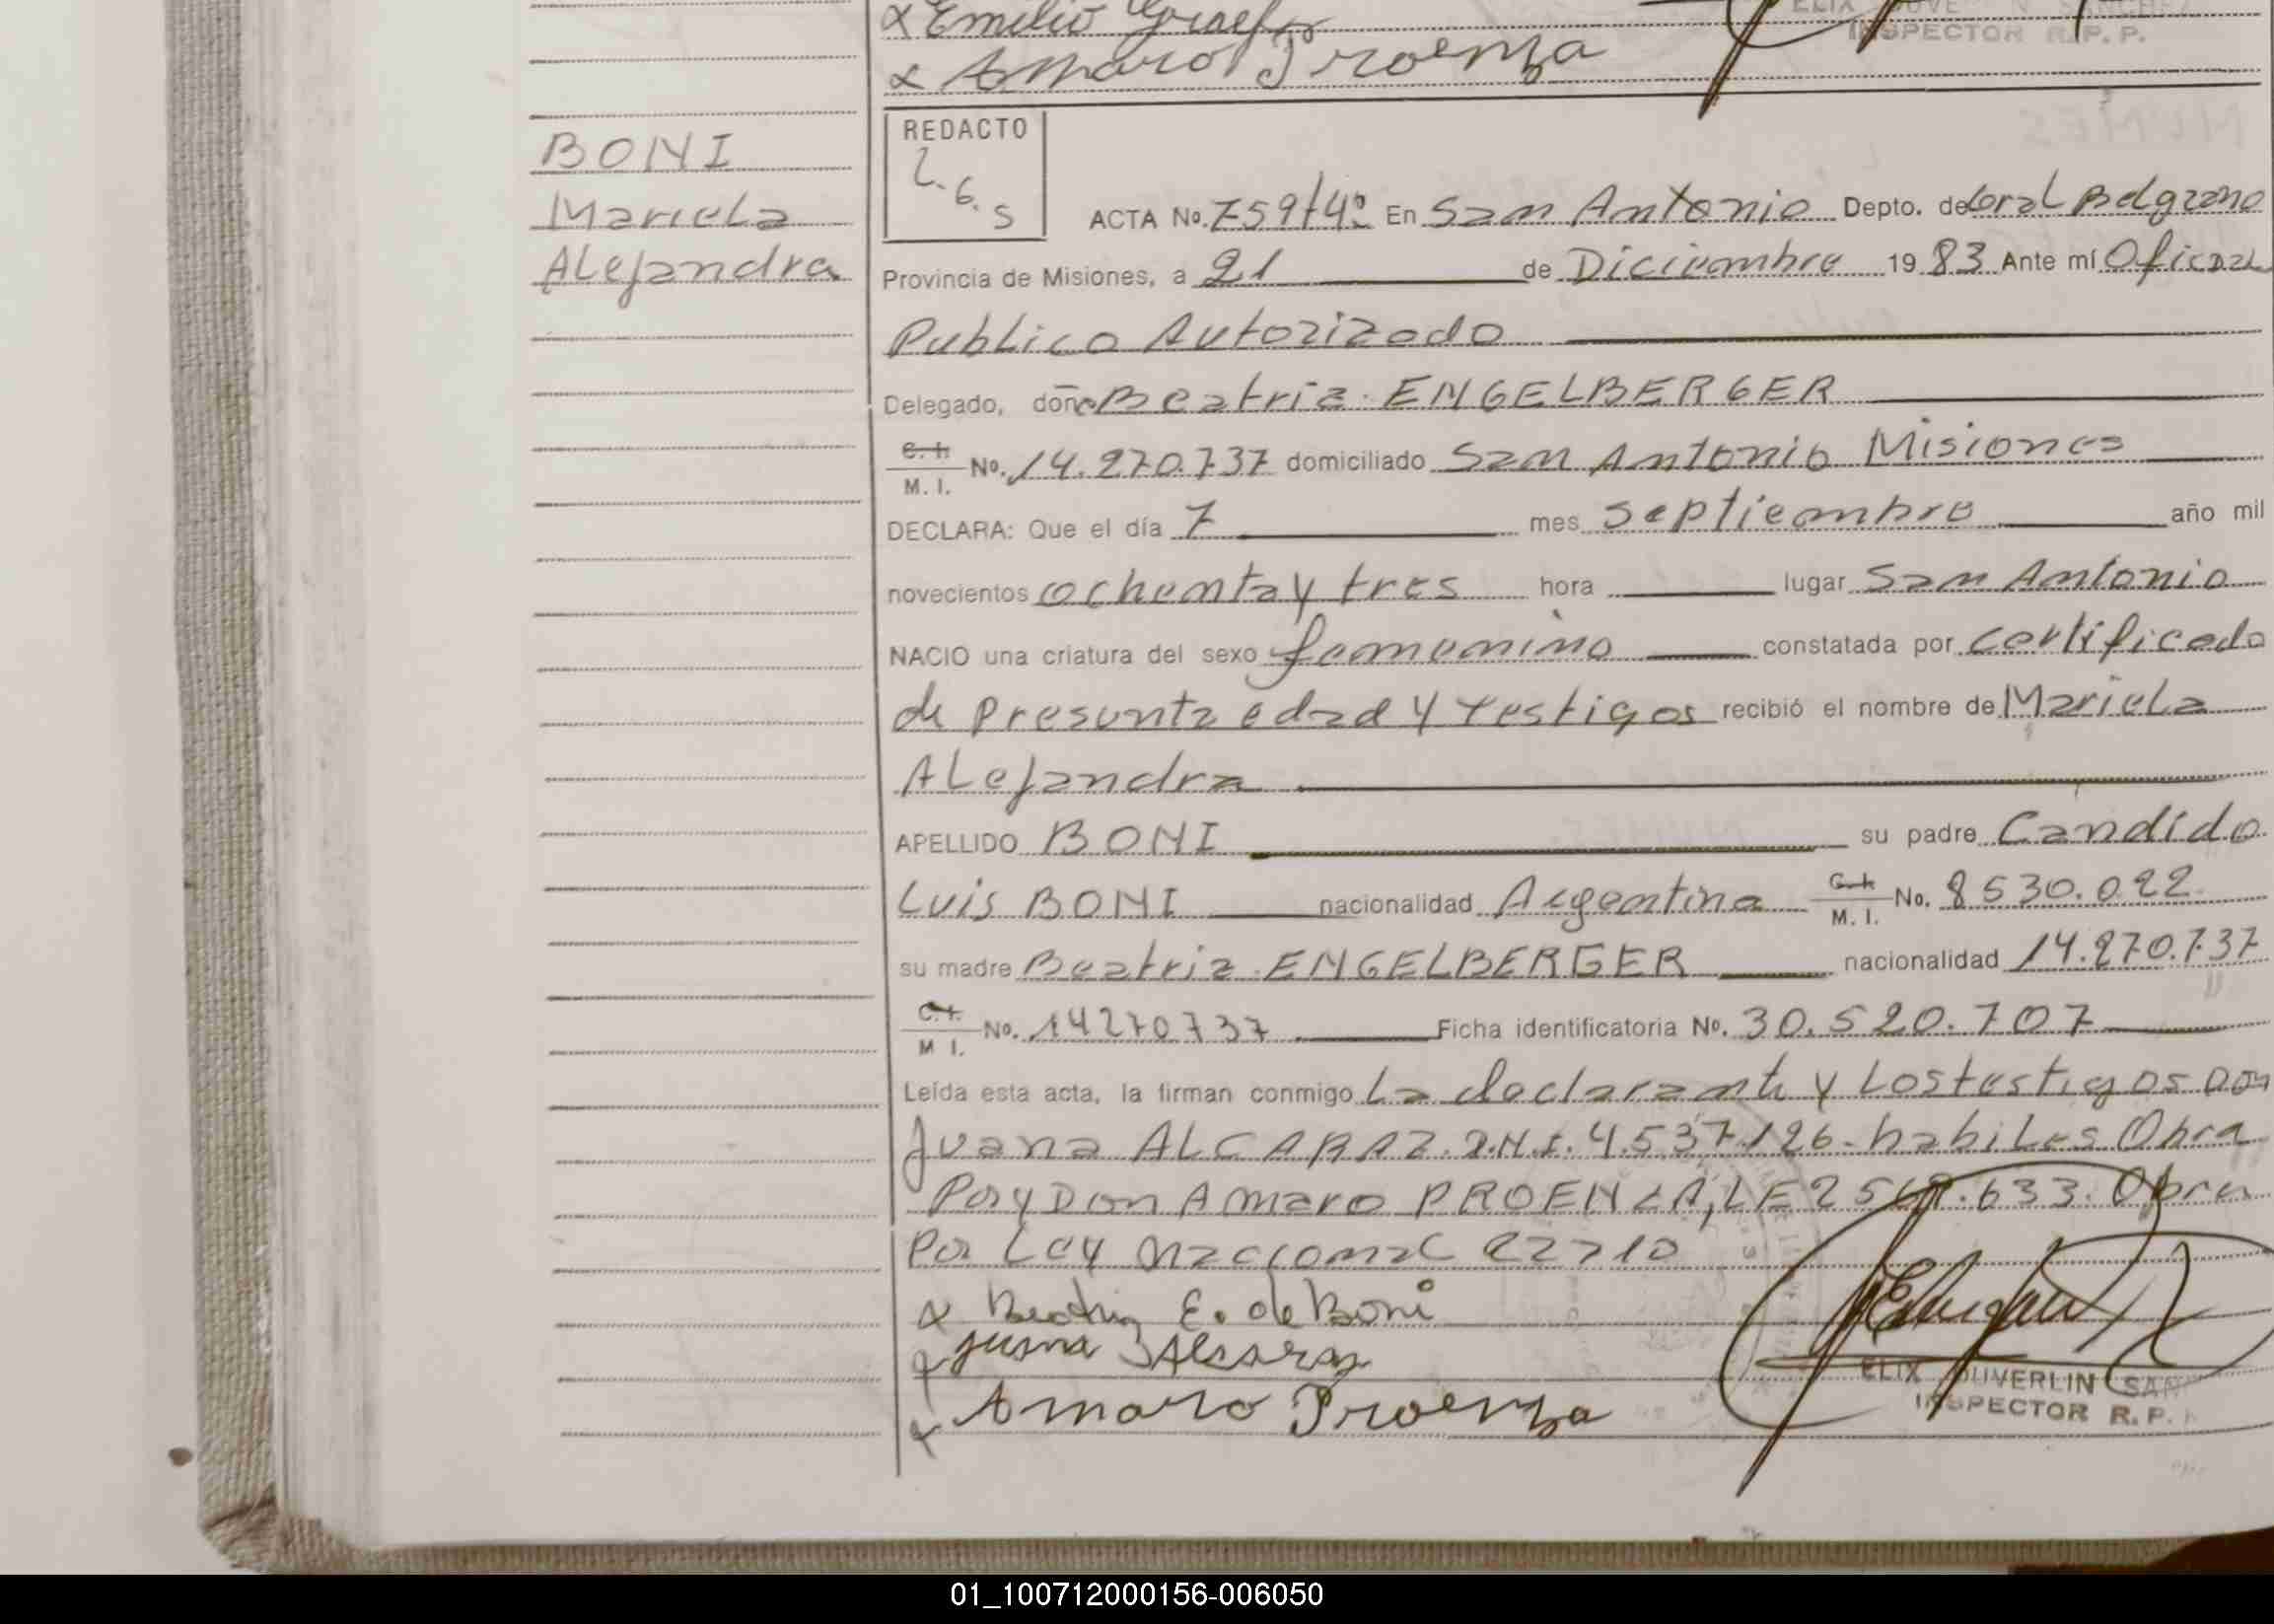 x Emilio Graef
ELIX
INSPECTOR R.P.P.
x Amaro Proenza
BONI
Mariela
Alejandra
REDACTO
L.G.S
ACTA No. 759/4º En San Antonio Depto. de Gral Belgrano
Provincia de Misiones, a 21 de Diciembre 1983 Ante mí Oficial
Publico Autorizado
Delegado, doña Beatriz ENGELBERGER
C. I. M. I. No. 14.270.737 domiciliado San Antonio Misiones
DECLARA: Que el día 7 mes septiembre año mil
novecientos ochenta y tres hora lugar San Antonio
NACIO una criatura del sexo femenino constatada por certificado
de presunta edad y testigos recibió el nombre de Mariela
Alejandra
APELLIDO BONI su padre Candido
Luis BONI nacionalidad Argentina C. I. M. I. No. 8530.022
su madre Beatriz ENGELBERGER nacionalidad 14.270.737
C. I. M I. No. 14270737 Ficha identificatoria No. 30.520.707
Leída esta acta, la firman conmigo La declarante y Los testigos Don
Juana ALCARAZ. D.N.I. 4.537.126. habiles Obra
Por y Don Amaro PROENZA, LE 2 633. Obra
Por Ley Nacional 22710
x Beatriz E. de Boni
x Juana Alcaraz
ELIX DUVERLIN SAN
x Amaro Proenza
INSPECTOR R. P.
01_100712000156-006050